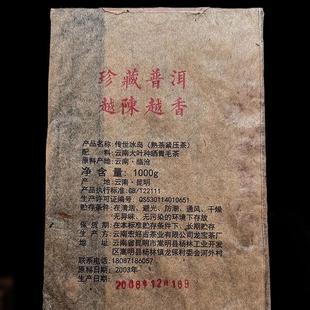 珍藏普洱
越陳越香
产品名称：传世冰岛（熟茶紧压茶）
配　　料：云南大叶种晒青毛茶
原料产地：云南·临沧
净 含 量：1000g
产　　地：云南·昆明
产品执行标准：GB/T22111
生产许可证编号：QS530114010651
贮存条件：在清洁、避光、防潮、通风、干燥
无异味、无污染的环境下存放
保 质 期：在本标准贮存条件下，长期存放
生 产 商：云南宏好吉茶业有限公司龙宝茶厂
地　　址：云南省昆明市嵩明县杨林工业开发
区嵩明县杨林镇龙保村委会河外村
联系电话：18087186057
原料日期：2003年
生产日期：
2008年12月18日